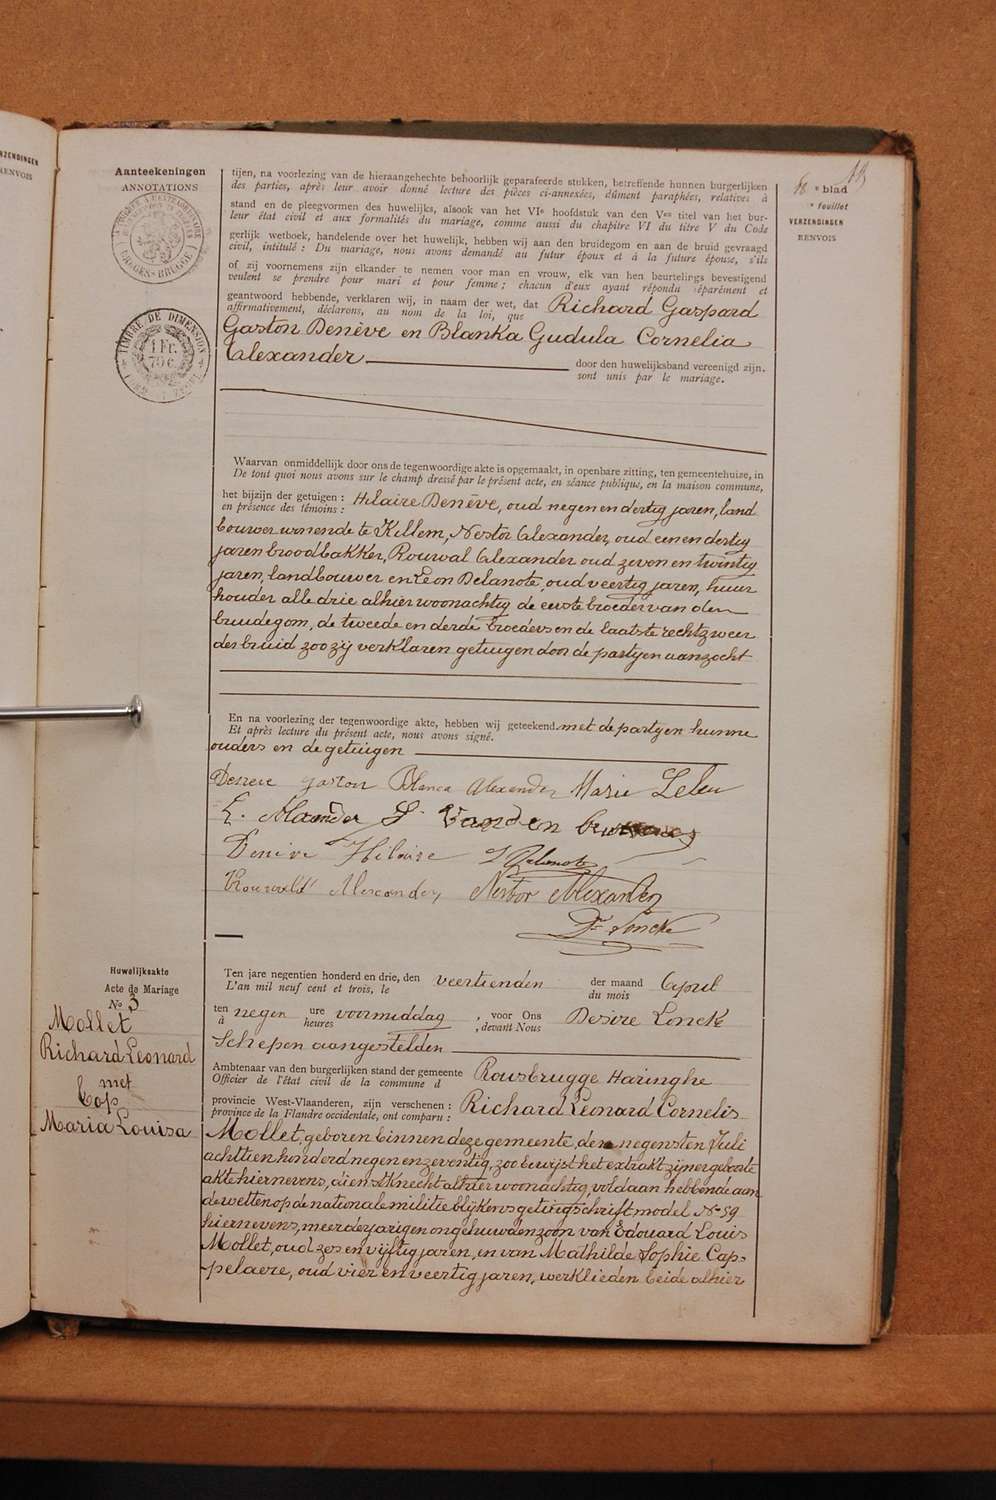 RZENDINGEN
RENVOIS
Aanteekeningen
ANNOTATIONS
TIMBRE DE DIMENSION
1 Fr.
70 c
blad
feuillet
VERZENDINGEN
RENVOIS
tijen, na voorlezing van de hieraangehechte behoorlijk geparafeerde stukken, betreffende hunnen burgerlijken
des parties, après leur avoir donné lecture des pièces ci-annexées, dûment paraphées, relatives à
stand en de pleegvormen des huwelijks, alsook van het VIe hoofdstuk van den Ven titel van het bur-
leur état civil et aux formalités du mariage, comme aussi du chapitre VI du titre V du Code
gerlijk wetboek, handelende over het huwelijk, hebben wij aan den bruidegom en aan de bruid gevraagd
civil, intitulé : Du mariage, nous avons demandé au futur époux et à la future épouse, s'ils
of zij voornemens zijn elkander te nemen voor man en vrouw, elk van hen beurtelings bevestigend
veulent se prendre pour mari et pour femme ; chacun d'eux ayant répondu séparément et
geantwoord hebbende, verklaren wij, in naam der wet, dat Richard Gaspard
affirmativement, déclarons, au nom de la loi, que
Gaston Denève en Blanka Gudula Cornelia
Alexander door den huwelijksband vereenigd zijn.
sont unis par le mariage.
Waarvan onmiddellijk door ons de tegenwoordige akte is opgemaakt, in openbare zitting, ten gemeentehuize, in
De tout quoi nous avons sur le champ dressé par le présent acte, en séance publique, en la maison commune,
het bijzijn der getuigen : Hilaire Denève, oud negen en dertig jaren, land
en présence des témoins :
bouwer wonende te Killem, Nestor Alexander, oud een en dertig
jaren broodbakker, Rouwal Alexander oud zeven en twintig
jaren, landbouwer en Leon Delanote, oud veertig jaren, huur
houder alle drie alhier woonachtig de eerste broeder van den
bruidegom, de tweede en derde broeders en de laatste rechtzweer
der bruid zoo zij verklaren getuigen door de partyen aanzocht
En na voorlezing der tegenwoordige akte, hebben wij geteekend met de partyen hunne
Et après lecture du présent acte, nous avons signé.
ouders en de getuigen
Deneve gaston Blanca Alexander Marie Leleu
E. Alexander S. Vanden
Denève Hilaire L Delanote
Rouwald Alexander Nestor Alexander
D. Loncke
Huwelijksakte
Acte de Mariage
No 3
Mollet
Richard Leonard
met
Cop
Maria Louisa
Ten jare negentien honderd en drie, den veertienden der maand April
L'an mil neuf cent et trois, le du mois
ten negen ure voormiddag , voor Ons Desire Loncke
à heures , devant Nous
Schepen aangestelden
Ambtenaar van den burgerlijken stand der gemeente Rousbrugge Haringhe
Officier de l'état civil de la commune d
provincie West-Vlaanderen, zijn verschenen : Richard Leonard Cornelis
province de la Flandre occidentale, ont comparu :
Mollet, geboren binnen deze gemeente, den negensten Juli
achttien honderd negen en zeventig, zoo bewijst het extrakt zijner geboorte
akte hiernevens, dienstknecht alhier woonachtig, voldaan hebbende aan
de wetten op de nationale militie blijkens getuigschrift model No 59
hiernevens, meerderjarigen ongehuwden zoon van Edouard Louis
Mollet, oud zes en vijftig jaren, en van Mathilde Sophie Cap-
pelaere, oud vier en veertig jaren, werklieden beide alhier